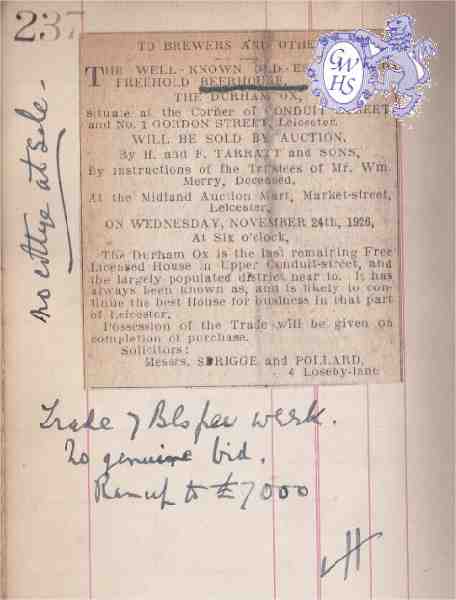 237
TO BREWERS AND OTHE
THE WELL-KNOWN OLD-ES
FREEHOLD BEERHOUSE,
THE DURHAM OX,
situate at the Corner of CONDUIT STREET
and No. 1 GORDON STREET, Leicester.
WILL BE SOLD BY AUCTION,
By H. and F. TARRATT and SONS,
By instructions of the Trustees of Mr. Wm.
Merry, Deceased,
At the Midland Auction Mart, Market-street,
Leicester,
ON WEDNESDAY, NOVEMBER 24th, 1926,
At Six o'clock,
The Durham Ox is the last remaining Free
Licensed House in Upper Conduit-street, and
the largely populated district near to. It has
always been known as, and is likely to con-
tinue the best House for business in that part
of Leicester.
Possession of the Trade will be given on
completion of purchase.
Solicitors:
Messrs. SPRIGGE and POLLARD,
4 Loseby-lane
no at Sale -
Trade 7 Bls per week.
No genuine bid.
Ran up to £7000
H
GWHS